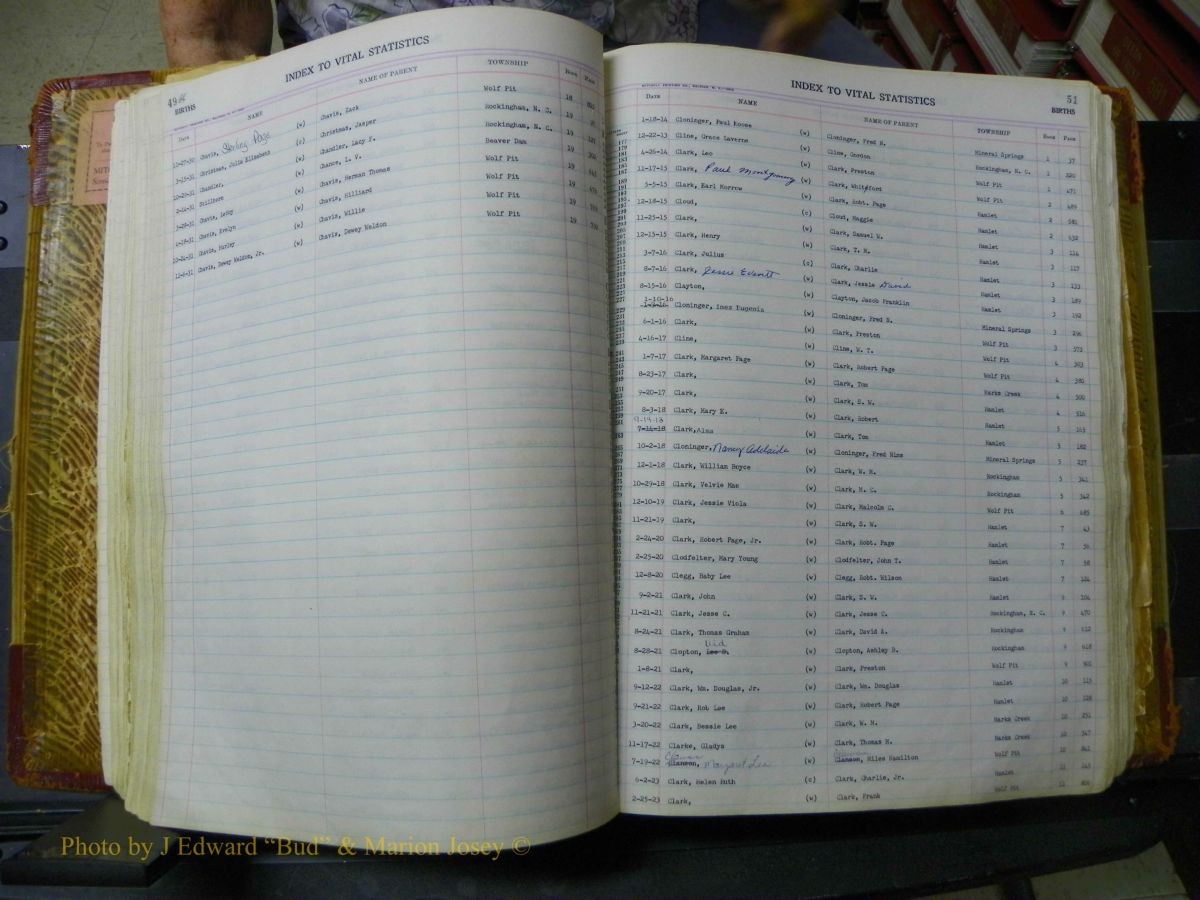 49
INDEX TO VITAL STATISTICS
BIRTHS
Date NAME NAME OF PARENT TOWNSHIP Book Page
11-27-30 Chavis, Sterling Page (w) Chavis, Zack Wolf Pit 18
3-15-31 Christmas, Julia Elizabeth (c) Christmas, Jasper Rockingham, N. C. 19
Chandler, (w) Chandler, Lady F. Rockingham, N. C. 19
Stillborn (w) Chance, L. V. Beaver Dam 19
Chavis, LeRoy (w) Chavis, Herman Thomas Wolf Pit 19
Chavis, Evelyn (w) Chavis, Hilliard Wolf Pit 19
Chavis, Hurley (w) Chavis, Willie Wolf Pit 19
Chavis, Dewey Weldon, Jr. (w) Chavis, Dewey Weldon Wolf Pit 19
51
INDEX TO VITAL STATISTICS
BIRTHS
Date NAME NAME OF PARENT TOWNSHIP Book Page
1-18-14 Cloninger, Paul Koose (w) Cloninger, Fred H. Mineral Springs 1 37
12-22-13 Cline, Grace Laverne (w) Cline, Gordon Rockingham, N. C. 1 320
4-26-14 Clark, Leo (w) Clark, Preston Wolf Pit 1 471
11-17-15 Clark, Paul Montgomery (w) Clark, Whiteford Wolf Pit 2 489
5-5-15 Clark, Earl Morrow (w) Clark, Robt. Page Hamlet 2 581
12-18-15 Cloud, (c) Cloud, Maggie Hamlet 2 632
11-25-15 Clark, (w) Clark, Samuel W. Hamlet 3 114
12-15-15 Clark, Henry (w) Clark, T. H. Hamlet 3 117
3-7-16 Clark, Julius (c) Clark, Charlie Hamlet 3 133
8-7-16 Clark, Jessie Everett (w) Clark, Jessie David Hamlet 3 189
8-15-16 Clayton, (w) Clayton, Jacob Franklin Hamlet 3 192
1-10-16 Cloninger, Ines Eugenia (w) Cloninger, Fred S. Mineral Springs 3 296
6-1-16 Clark, (w) Clark, Preston Wolf Pit 3 573
4-16-17 Cline, (w) Cline, W. T. Wolf Pit 4 303
1-7-17 Clark, Margaret Page (w) Clark, Robert Page Wolf Pit 4 380
8-23-17 Clark, (w) Clark, Tom Marks Creek 4 500
9-20-17 Clark, (w) Clark, S. W. Hamlet 4 516
8-3-18 Clark, Mary E. (w) Clark, Robert Hamlet 5 165
9-14-18
7-14-18 Clark, Alma (w) Clark, Tom Hamlet 5 182
10-2-18 Cloninger, Nancy Adelaide (w) Cloninger, Fred Hims Mineral Springs 5 237
12-1-18 Clark, William Boyce (w) Clark, W. H. Rockingham 5 341
10-29-18 Clark, Velvie Mae (w) Clark, M. C. Rockingham 5 342
12-10-19 Clark, Jessie Viola (w) Clark, Malcolm C. Wolf Pit 6 485
11-21-19 Clark, (w) Clark, S. W. Hamlet 7 43
2-24-20 Clark, Robert Page, Jr. (w) Clark, Robt. Page Hamlet 7 56
2-25-20 Clodfelter, Mary Young (w) Clodfelter, John T. Hamlet 7 58
12-8-20 Clegg, Baby Lee (w) Clegg, Robt. Wilson Hamlet 7 124
9-2-21 Clark, John (w) Clark, S. W. Hamlet 9 104
11-21-21 Clark, Jesse C. (w) Clark, Jesse C. Rockingham, N. C. 9 470
8-24-21 Clark, Thomas Graham (w) Clark, David A. Rockingham 9 612
8-28-21 Clopton, Lee B. (w) Clopton, Ashley B. Rockingham 9 618
1-8-21 Clark, (w) Clark, Preston Wolf Pit 9
9-12-22 Clark, Wm. Douglas, Jr. (w) Clark, Wm. Douglas Hamlet 10 115
9-21-22 Clark, Rob Lee (w) Clark, Robert Page Hamlet 10 128
3-20-22 Clark, Bessie Lee (w) Clark, W. H. Marks Creek 10 251
11-17-22 Clarke, Gladys (w) Clark, Thomas H. Marks Creek 10 347
7-19-22 Clanson, Margaret Lee (w) Clanson, Niles Hamilton Wolf Pit 10 841
6-2-23 Clark, Helen Ruth (c) Clark, Charlie, Jr. Hamlet 11 145
2-25-23 Clark, (w) Clark, Frank Wolf Pit 11
Photo by J Edward “Bud” & Marion Josey ©